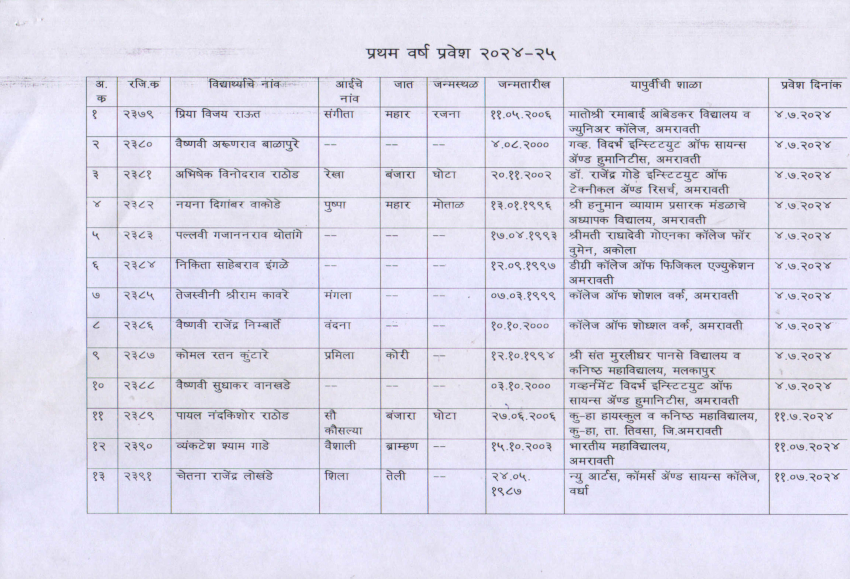 प्रथम वर्ष प्रवेश २०२४-२५
अ. क	रजि.क	विद्यार्थ्याचे नांव	आईचे नांव	जात	जन्मस्थळ	जन्मतारीख	यापुर्वीची शाळा	प्रवेश दिनांक
१	२३७९	प्रिया विजय राऊत	संगीता	महार	रजना	११.०५.२००६	मातोश्री रमाबाई आंबेडकर विद्यालय व
ज्युनिअर कॉलेज, अमरावती	४.७.२०२४
२	२३८०	वैष्णवी अरूणराव बाळापुरे	--	--	--	४.०८.२०००	गव्ह. विदर्भ इन्स्टिटयुट ऑफ सायन्स
अॅण्ड हुमानिटीस, अमरावती	४.७.२०२४
३	२३८१	अभिषेक विनोदराव राठोड	रेखा	बंजारा	घोटा	२०.११.२००२	डॉ. राजेंद्र गोडे इन्स्टिटयुट ऑफ
टेक्नीकल अॅण्ड रिसर्च, अमरावती	४.७.२०२४
४	२३८२	नयना दिगांबर वाकोडे	पुष्पा	महार	मोताळ	१३.०१.१९९६	श्री हनुमान व्यायाम प्रसारक मंडळाचे
अध्यापक विद्यालय, अमरावती	४.७.२०२४
५	२३८३	पल्लवी गजाननराव थोतांगे	--	--	--	१७.०४.१९९३	श्रीमती राधादेवी गोएनका कॉलेज फॉर
वुमेन, अकोला	४.७.२०२४
६	२३८४	निकिता साहेबराव इंगळे	--	--	--	१२.०९.१९९७	डीग्री कॉलेज ऑफ फिजिकल एज्युकेशन
अमरावती	४.७.२०२४
७	२३८५	तेजस्वीनी श्रीराम कावरे	मंगला	--	--	०७.०३.१९९९	कॉलेज ऑफ शोशल वर्क, अमरावती	४.७.२०२४
८	२३८६	वैष्णवी राजेंद्र निम्बार्ते	वंदना	--	--	१०.१०.२०००	कॉलेज ऑफ शोध्शल वर्क, अमरावती	४.७.२०२४
९	२३८७	कोमल रतन कुंटारे	प्रमिला	कोरी	--	१२.१०.१९९४	श्री संत मुरलीधर पानसे विद्यालय व
कनिष्ठ महाविद्यालय, मलकापुर	४.७.२०२४
१०	२३८८	वैष्णवी सुधाकर वानखडे	--	--	--	०३.१०.२०००	गव्हर्नमेंट विदर्भ इन्स्टिटयुट ऑफ
सायन्स अॅण्ड हुमानिटीस, अमरावती	४.७.२०२४
११	२३८९	पायल नंदकिशोर राठोड	सौ कौसल्या	बंजारा	घोटा	२७.०६.२००६	कु-हा हायस्कुल व कनिष्ठ महाविद्यालय,
कु-हा, ता. तिवसा, जि.अमरावती	११.७.२०२४
१२	२३९०	व्यंकटेश श्याम गाडे	वैशाली	ब्राम्हण	--	१५.१०.२००३	भारतीय महाविद्यालय,
अमरावती	११.०७.२०२४
१३	२३९१	चेतना राजेंद्र लोखंडे	शिला	तेली		२४.०५. १९८७	न्यु आर्टस, कॉमर्स अॅण्ड सायन्स कॉलेज,
वर्धा	११.०७.२०२४